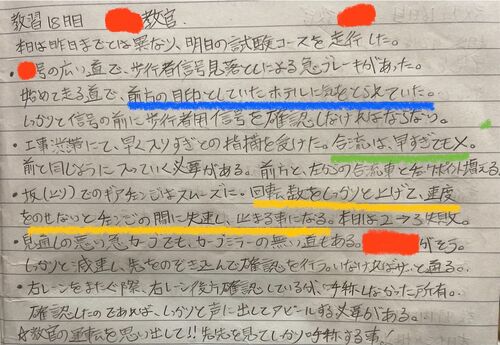 教習18日目 教官
本日は昨日までとは異なり、明日の試験コースを走行した。
・ 号の広い道で、歩行者信号見落としによる急ブレーキがあった。
始めて走る道で、前方の目印としていたホテルに気をとられていた。
しっかりと信号の前に歩行者用信号を確認しなければならない。
・工事渋帯にて、早く入りすぎとの指摘を受けた。合流は、早すぎてもメ。
前と同じように入っていく必要がある。前方と、左からの合流車と
・坂(上り)でのギアチェンジはスムーズに・回転数をしっかりと上げて、速度
をのせないとチェンジの間に失速し、止まる事になる。本日は2→3失敗。
・見通しの悪い急カーブでも、カーブミラーの無い道もある。 がそう。
しっかりと減速し、先をのぞき込んで確認を行う。いなければサッと通る。
・右レーンをまたぐ際、右レーン後方確認しているが、呼称しなかった所有。
確認したのであれば、しっかりと声に出してアピールする必要がある。
☆教官の運転を思い出して!!先先を見てしっかり呼称する事!